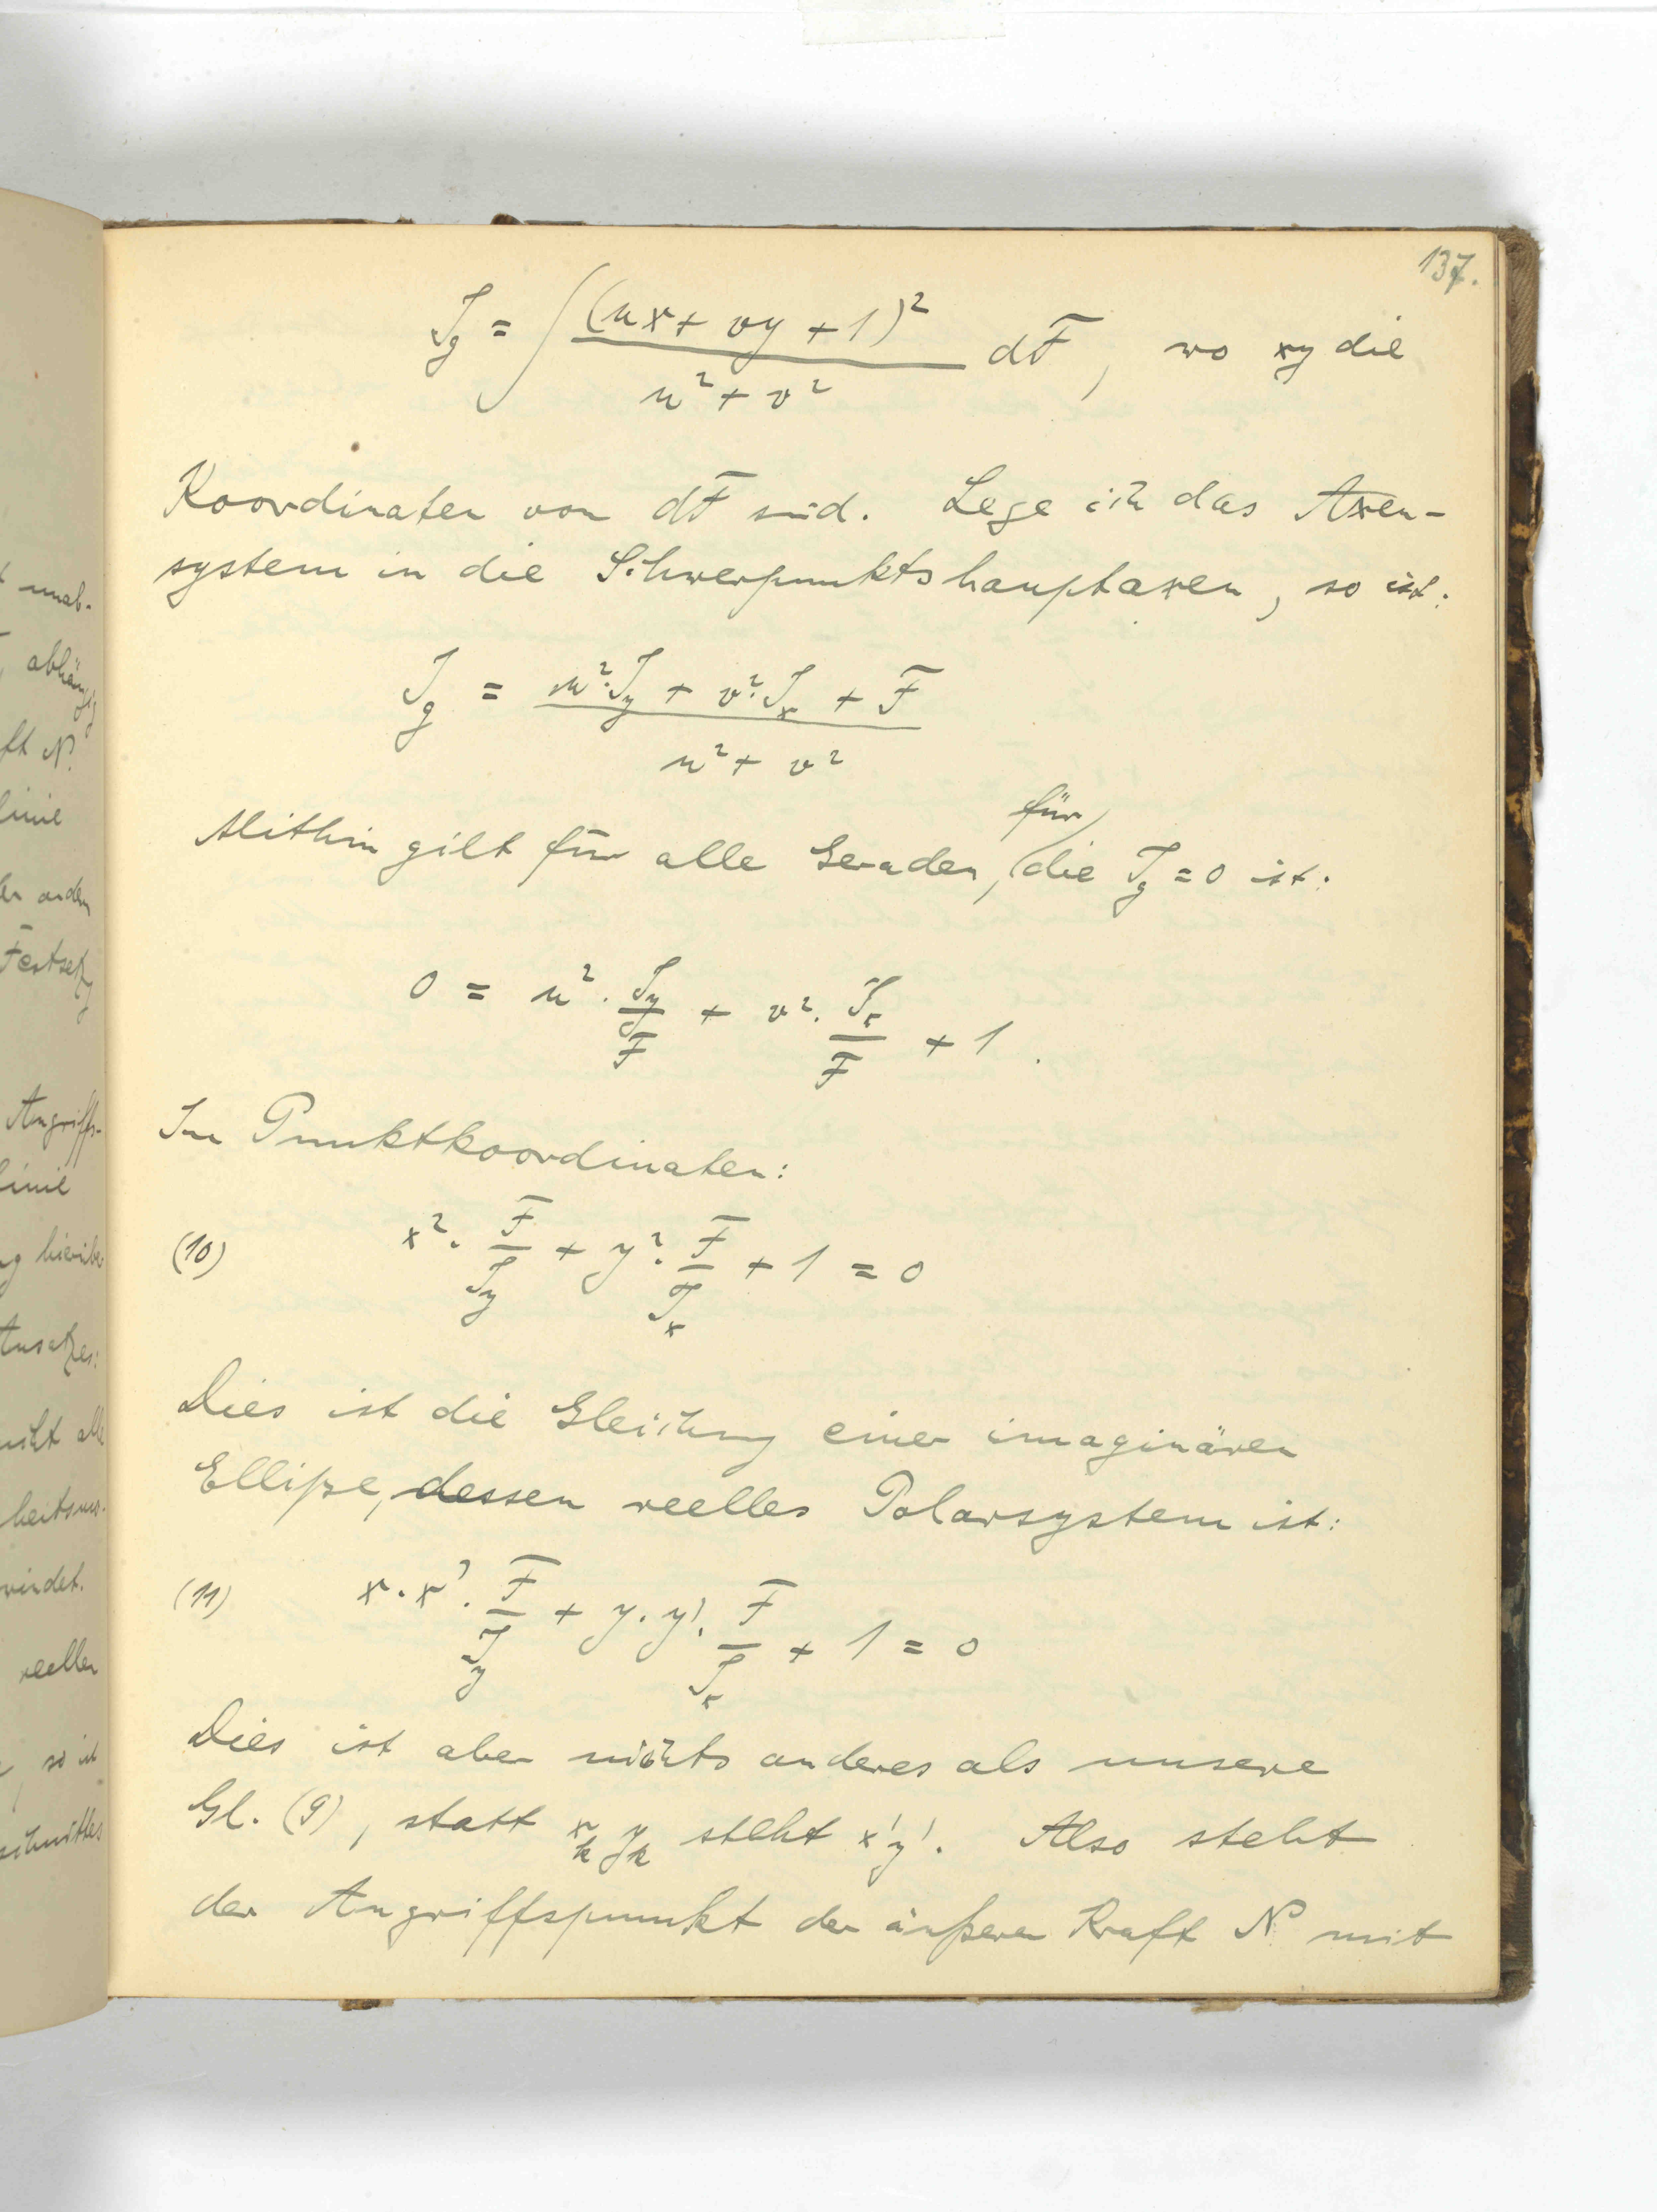 137.
J_g = ∫ (ux + vy + 1)² / (u² + v²) dF, wo xy die
Koordinaten von dF sind. Lege ich das Axen-
system in die Schwerpunktshauptaxen, so ist:
J_g = (u²·J_y + v²·J_x + F) / (u² + v²)
für
Mithin gilt für alle Geraden, die J_g = 0 ist:
0 = u² · J_y/F + v² · J_x/F + 1.
In Punktkoordinaten:
(10) x² · F/J_y + y² · F/J_x + 1 = 0
Dies ist die Gleichung einer imaginären
Ellipse, dessen reelles Polarsystem ist:
(11) x·x' · F/J_y + y·y' · F/J_x + 1 = 0
Dies ist aber nichts anderes als unsere
Gl. (9), statt x_k y_k steht x'y'. Also steht
der Angriffspunkt der äußeren Kraft N mit
unab-
abhängig
ft N.
linie
andern
Festsetzg
Angriffs-
linie
Ansatzes:
nicht alle
windet.
reellen
so ist
schnittes